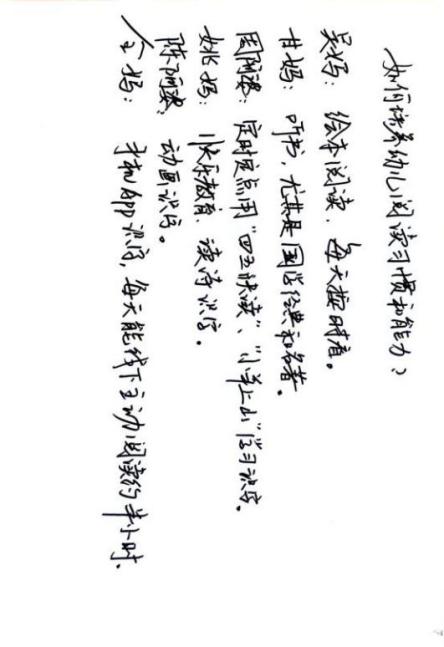 如何培养幼儿阅读习惯和能力？
吴妈：绘本阅读，每天按时看。
甘妈：听书，尤其是国学经典和名著。
周阿婆：定时定点用“四五快读”、“小羊上山”学习识字。
姚妈：快乐教育，读诗识字。
陈阿婆：动画识字。
金妈：手机App识字，每天能线下主动阅读约半小时。